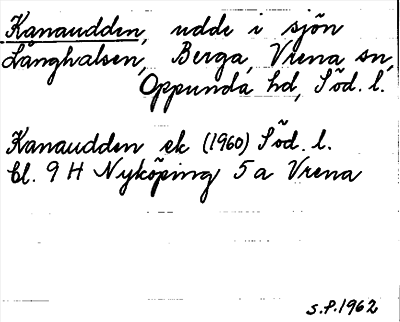 Kanaudden, udde i sjön
Långhalsen, Berga, Vrena sn,
Oppunda hd, Söd. l.
Kanaudden ek (1960) Söd. l.
bl. 9 H Nyköping 5 a Vrena
S.P. 1962